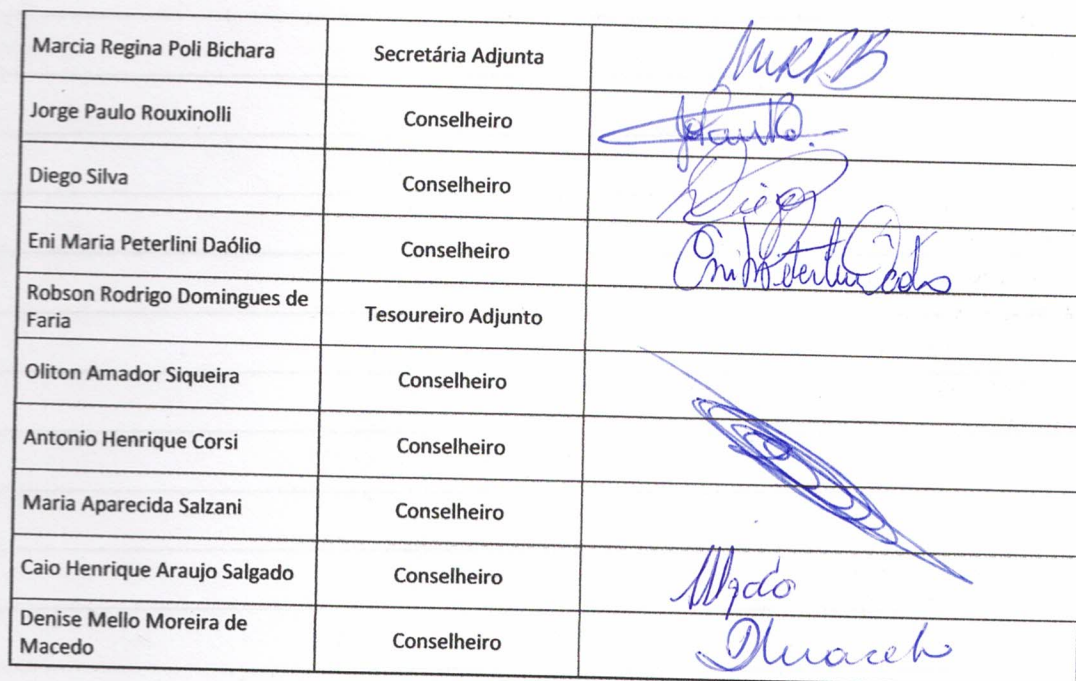 Marcia Regina Poli Bichara Secretária Adjunta MRPB
Jorge Paulo Rouxinolli Conselheiro
Diego Silva Conselheiro Diego
Eni Maria Peterlini Daólio Conselheiro
Robson Rodrigo Domingues de
Faria Tesoureiro Adjunto
Oliton Amador Siqueira Conselheiro
Antonio Henrique Corsi Conselheiro
Maria Aparecida Salzani Conselheiro
Caio Henrique Araujo Salgado Conselheiro
Denise Mello Moreira de
Macedo Conselheiro